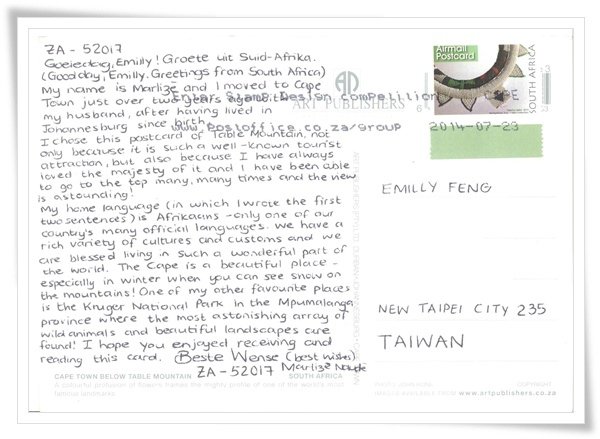 ZA - 52017
Goeiedag, Emilly! Groete uit Suid-Afrika.
(Good day, Emilly. Greetings from South Africa)
My name is Marlize and I moved to Cape
Town just over two years ago with
my husband, after having lived in
Johannesburg since birth.
I chose this postcard of Table Mountain, not
only because it is such a well-known tourist
attraction, but also because I have always
loved the majesty of it and I have been able
to go to the top many, many times and the view
is astounding!
My home language (in which I wrote the first
two sentences) is Afrikaans - only one of our
country's many official languages. We have a
rich variety of cultures and customs and we
are blessed living in such a wonderful part of
the world. The Cape is a beautiful place -
especially in winter when you can see snow on
the mountains! One of my other favourite places
is the Kruger National Park in the Mpumalanga
province where the most astonishing array of
wild animals and beautiful landscapes are
found! I hope you enjoyed receiving and
reading this card. Beste Wense (best wishes)
ZA - 52017 Marlize Naude
CAPE TOWN BELOW TABLE MOUNTAIN SOUTH AFRICA
A colourful profusion of flowers frames the mighty profile of one of the world's most
famous landmarks.
Enter Stamp Design Competition
www.postoffice.co.za/group
ART PUBLISHERS
Airmail
Postcard
SOUTH AFRICA
2014-07-23
EMILLY FENG
NEW TAIPEI CITY 235
TAIWAN
COPYRIGHT
www.artpublishers.co.za